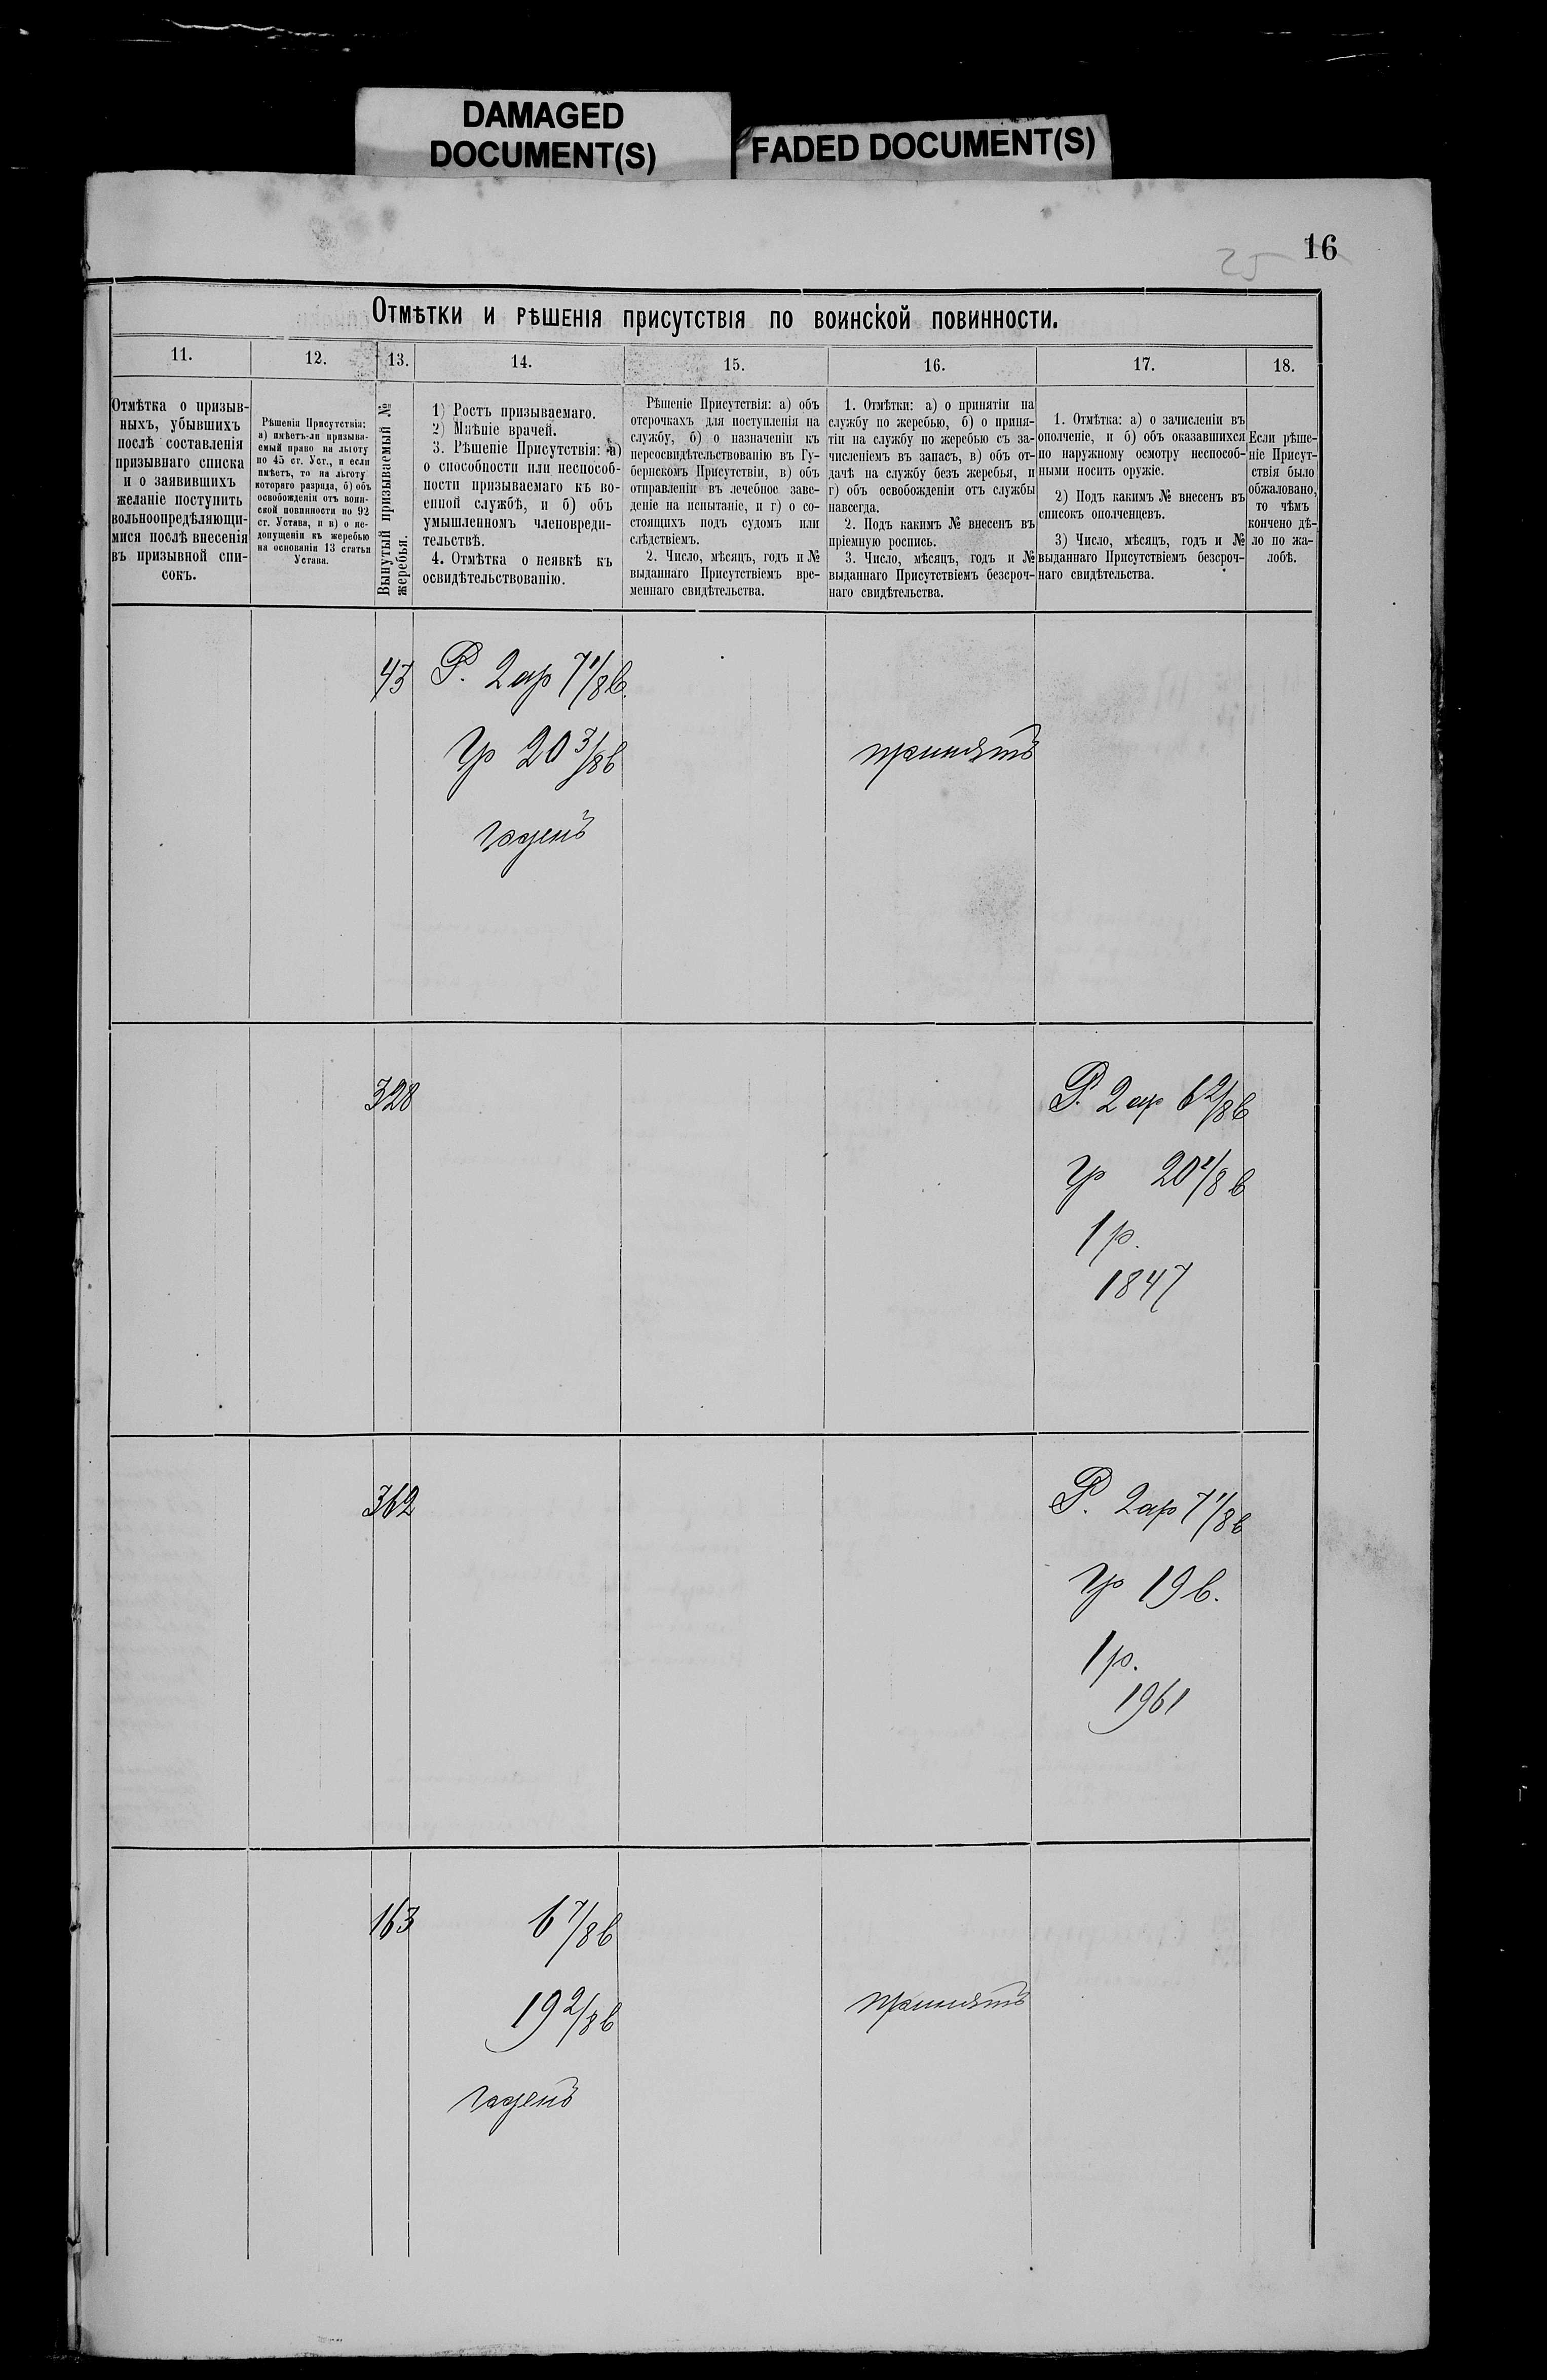 DAMAGED
DOCUMENT(S)
FADED DOCUMENT(S)
16
25
Отмѣтки и рѣшенія присутствія по воинской повинности.
11.
12.
13.
14.
15.
16.
17.
18.
Отмѣтка о призыв-
ныхъ, убывшихъ
послѣ составленія
призывнаго списка
и о заявившихъ
желаніе поступить
вольноопредѣляющи-
мися послѣ внесенія
въ призывной спи-
сокъ.
Рѣшенія Присутствія:
а) имѣетъ-ли призыва-
емый право на льготу
по 45 ст. Уст., и если
имѣетъ, то на льготу
котораго разряда, б) объ
освобожденіи отъ воин-
ской повинности по 92
ст. Устава, и в) о не-
допущеніи къ жеребью
на основаніи 13 статьи
Устава.
Вынутый призываемый №
жеребья.
1) Ростъ призываемаго.
2) Мнѣніе врачей.
3. Рѣшеніе Присутствія: а)
о способности или неспособ-
ности призываемаго къ во-
енной службѣ, и б) объ
умышленномъ членовреди-
тельствѣ.
4. Отмѣтка о неявкѣ къ
освидѣтельствованію.
Рѣшеніе Присутствія: а) объ
отсрочкахъ для поступленія на
службу, б) о назначеніи къ
переосвидѣтельствованію въ Гу-
бернскомъ Присутствіи, в) объ
отправленіи въ лечебное заве-
деніе на испытаніе, и г) о со-
стоящихъ подъ судомъ или
слѣдствіемъ.
2. Число, мѣсяцъ, годъ и №
выданнаго Присутствіемъ вре-
меннаго свидѣтельства.
1. Отмѣтки: а) о принятіи на
службу по жеребью, б) о приня-
тіи на службу по жеребью съ за-
численіемъ въ запасъ, в) объ от-
дачѣ на службу безъ жеребья, и
г) объ освобожденіи отъ службы
навсегда.
2. Подъ какимъ № внесенъ въ
пріемную роспись.
3. Число, мѣсяцъ, годъ и №
выданнаго Присутствіемъ безсроч-
наго свидѣтельства.
1. Отмѣтка: а) о зачисленіи въ
ополченіе, и б) объ оказавшихся
по наружному осмотру неспособ-
ными носить оружіе.
2) Подъ какимъ № внесенъ въ
списокъ ополченцевъ.
3) Число, мѣсяцъ, годъ и №
выданнаго Присутствіемъ безсроч-
наго свидѣтельства.
Если рѣше-
ніе Присут-
ствія было
обжаловано,
то чѣмъ
кончено дѣ-
ло по жа-
лобѣ.
43
Р. 2 ар 7 1/8 в.
гр 20 3/8 в
годенъ
принятъ
328
Р. 2 ар 6 2/8 в
гр 20 1/8 в
1 р.
1847
362
Р. 2 ар 7 1/8 в
гр 19 в.
1 р.
1961
163
6 7/8 в
19 2/8 в
годенъ
принятъ